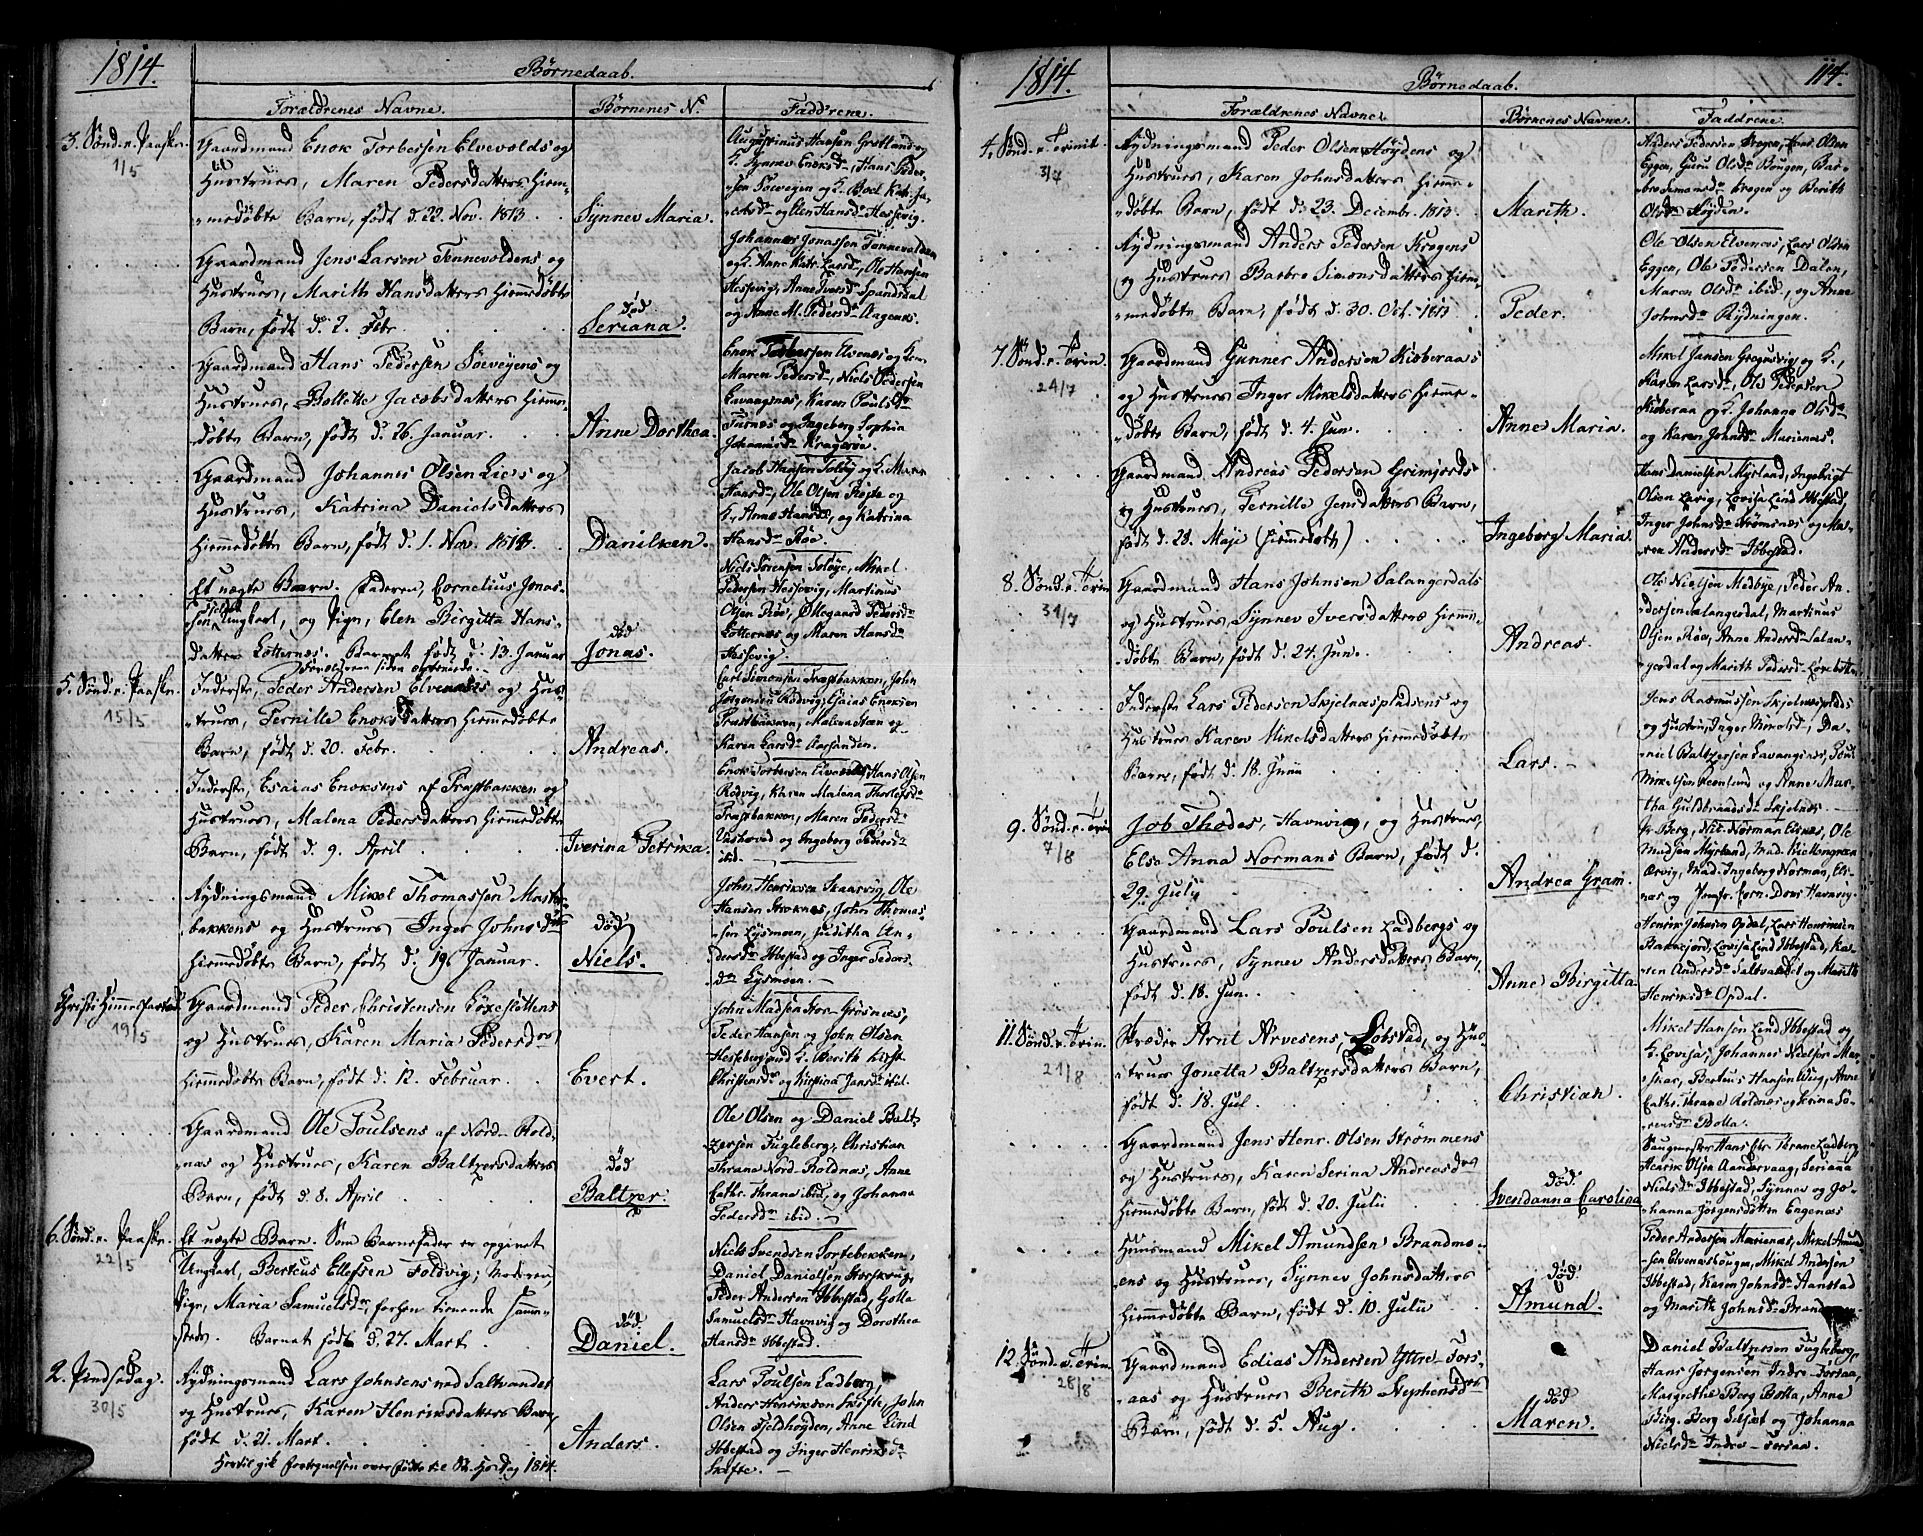 1814.
Børnedaab.
Forældrenes Navne.
Børnenes N.
Faddrene.
3. Sønd. e. Paaske.
1/5
Gaardmand Enok Torbersen Elvevolds og
Hustrues, Maren Pedersdatters hiem-
medøbte Barn, født d. 22. Nov. 1813.
Synnev Maria.
Augustinus Hansen Grøtland og
H. Synnev Enoksdr, Hans Peder-
sen Søeveien og H. Boel Katr. Ja-
cobsdr og Elen Hansdr Hessevig.
Gaardmand Jens Larsen Tennevoldens og
Hustrues, Marith Hansdatters hiemmedøbte
Barn, født d. 2. Febr.
død
Seriana.
Johannes Jonassen Tennevolden
og H. Anne Katr. Larsdr, Ole Hansen
Hessevig, Anne Iversdr Spandsdal
og Anne M. Pedersdr Aagenes.
Gaardmand Hans Pedersen Søeveyens og
Hustrues, Bollette Jacobsdatters hiemme-
døbte Barn, født d. 26. Januar.
Anne Dorthea.
Enok Torbersen Elvenes og H.
Maren Pedersdr, Niels Pedersen
Lavangsnæs, Karen Poulsdr
Turnæs og Ingeborg Sophia
Johannisdr Kragerøe.
Gaardmand Johannes Olsen Lies og
Hustrues, Katrina Danielsdatters
hiemmedøbte Barn, født d. 1. Nov. 1813.
Danilken.
Jacob Hansen Solbg og H. Maren
Hansdr, Ole Olsen Røste og
H. Anne Hansdr, og Katrina
Hansdr Røe.
Et uægte Barn. Faderen, Cornelius Jonas-
sen Ungkarl, og Pige, Elen Birgitte Hans-
datter Lotternæs. Barnet født d. 13. Januar
død
Jonas.
Niels Sørensen Foløye, Mikel
Pedersen Hessevig, Martinus
Olsen Røe, Øllegaard Pedersdr
Lotternæs og Maren Hansdr
Hessevig.
5. Sønd. e. Paaske.
15/5
Inderste, Peder Andersen Elvenæs og Hus-
trues, Pernille Enoksdatters hiemmedøbte
Barn, født d. 20. Febr.
Andreas.
Carl Simonsen Præstbakken, John
Jørgensen Rødvig, Esaias Enoksen
Præstbakken, Malena Steen og
Karen Larsdr Aarsanden.
Inderste, Esaias Enoksens af Præstbakken og
Hustrues, Malena Pedersdatters hiemmedøbte
Barn, født d. 9. April
Iverina Petrika.
Enok Torbersen Elvenes, Hans Olsen
Rødvig, Karen Malena Thorlefsdr
Præstbakken, Maren Pedersdr
og Ingeborg Pedersdr
ibid.
Rydningsmand Mikel Thomassen Mostad-
bakkens og Hustrues Inger Johnsdrs
hiemmedøbte Barn, født d. 19. Januar.
død
Niels.
John Henriksen Skaarvig, Ole
Hansen Stroknæs, John Thomas-
sen Lysmoen, Juditha An-
dersdr Ibbestad og Inger Peders-
dr Lysmoen.
Christi Himmelfartsd.
19/5
Gaardmand Peder Christensen Løxesletten
og Hustrues, Karen Maria Pedersdrs
hiemmedøbte Barn, født d. 12. Februar.
Evert.
John Madsen Stor-Grøsnæs,
Peder Hansen og John Olsen
Hesseberg og H. Berith Kirst.
Christensdr og Kirstina Jansdr ibid.
Gaardmand Ole Poulsens af Nord-Rold-
næs og Hustrues, Karen Baltzersdatters
Barn, født d. 8. April
død
Baltzer.
Ole Olsen og Daniel Balt-
zersen Fugleberg, Christian
Thrane Nord-Roldnæs, Anne
Cathr. Thrane ibid, og Johanna
Pedersdr ibid.
6. Sønd. e. Paaske.
22/5
Et uægte Barn. Som Barnefader er opgivet
Ungkarl, Berteus Ellefsen Foldvig; Moderen
Pige, Maria Samuelsdr, forhen tienende samme-
steds. Barnet født d. 27. Mart.
død.
Daniel.
Niels Svendsen Sortebekken,
Daniel Danielsen Storskrug,
Peder Andersen Ibbestad, Golla
Samuelsdr Havnvig og Dorothea
Hansdr Ibbestad.
2. Pindsedag.
30/5
Rydningsmand Lars Johnsens ved Saltvandet
og Hustrues, Karen Henriksdatters Barn,
født d. 21. Mart.
Anders.
Lars Poulsen Ladberg,
Anders Henriksen Skifte, John
Olsen Fjeldhøyden, Anne Lind
Ibbestad og Inger Henriksdr
Skifte.
Hertil gik Fortegnelsen over fødte til St. Hansdag 1814.
1814.
Børnedaab.
114.
Forældrenes Navne.
Børnenes Navne.
Faddrene.
4. Sønd. e. Trinit.
3/7
Rydningsmand Peder Olsen Høydens og
Hustrues, Karen Johnsdatters hiemme-
døbte Barn, født d. 23. Decembr. 1813.
Marith.
Anders Pedersen Krogen, Lars Olsen
Eggen, Guru Olsdr Bougen, Bar-
bro Simonsdr Krogen og Berith
Olsdr Høyden.
Rydningsmand Anders Pedersen Krogens
og Hustrues Barbro Simonsdatters hiem-
medøbte Barn, født d. 30. Oct. 1813.
Peder.
Ole Olsen Elvenæs, Lars Olsen
Eggen, Ole Pedersen Dalen,
Maren Olsdr ibid., og Anne
Johnsdr Rydningen.
7. Sønd. e. Trin.
24/7
Gaardmand Gunner Andersen Kioberaas
og Hustrues Inger Mikelsdatters hiemme-
døbte Barn, født d. 4. Jun.
Anne Maria.
Mikel Jansen Gragusvig og H.,
Karen Larsdr, Ole Pedersen
Kioberaa og H. Johanna Olsdr
og Karen Johnsdr Marienæs.
Gaardmand Andreas Pedersen Grimjords
og Hustrues, Pernille Jensdatters Barn,
født d. 28. Maji (hiemmedøbt)
Ingeborg Maria.
Hans Danielsen Myrland, Ingebrigt
Olsen Lavig, Lovisa Lind Ibbestad,
Inger Johnsdr Strømsnæs og Ma-
ren Andersdr Ibbestad.
8. Sønd. e. Trin.
31/7
Gaardmand Hans Johnsen Salangsdals
og Hustrues Synnev Iversdatters hiemme-
døbte Barn, født d. 24. Jun.
Andreas.
Ole Nielsen Medbye, Peder An-
dersen Salangsdal, Martinus
Olsen Røe, Anne Andersdr Salan-
gsdal og Marith Pedersdr Løxebotten
Inderste Lars Pedersen Skjelnæspladsens og
Hustrues Karen Mikelsdatters hiemmedøbte
Barn, født d. 18. Junii
Lars.
Jens Rasmussen Skjelnæsplads
og Hustrue, Inger Nimelsdr, Da-
niel Baltzersen Lavangsnæs, Poul
Mikelsen og Anne Mar-
tha Guldbrandsdr Skjelnæs.
9. Sønd. e. Trin
7/8
Job Thodes, Havnvig, og Hustrues,
Else Anna Normans Barn, født d.
29. July
Andrea Gram.
Fr. Berg, Nic. Norman Elsnæs, Ole
Madsen Myrland, Mad. Kildengreen
Ørvig, Mad. Ingeborg Norman, Els-
næs og Jomfr. Corn. Dons Havnvig
Gaardmand Lars Poulsen Ladbergs og
Hustrues, Synnev Andersdatters Barn,
født d. 18. Jun.
Anne Birgitta
Henrik Johnsen Opdal, Lars Henriksen
Hannesjord, Lovisa Lind Ibbestad, Ka-
ren Andersdr Saltvandet og Marith
Henriksdr Opdal.
11. Sønd. e. Trin.
21/8
Skræder Arnt Arvesens, Lobstad, og Hus-
trues Jonetta Baltzersdatters Barn,
født d. 18. Jul.
Christian.
Mikel Hansen Lind Ibbestad og
H. Lovisa, Johannes Nielsen Mar-
skar, Berteus Hansen Aug, Anne
Cathr. Thrane Roldnæs og Serina Sø-
rensdr Bolla.
Gaardmand Jens Henr. Olsen Strømmens
og Hustrues, Karen Serina Andreasdrs
hiemmedøbte Barn, født d. 20. Julii
død.
Svendanna Carolina
Saugmester Hans Chr. Thrane Ladberg,
Henrik Olsen Aandervaag, Seriana
Nielsdr Ibbestad, Synnev og Jo-
hanna Jørgensdøttre Engenæs
Huusmand Mikel Amundsen Brandmo-
ens og Hustrues, Synnev Johnsdatters
hiemmedøbte Barn, født d. 10. Julii
død.
Amund.
Peder Andersen Marienæs, Mikel Amund-
sen Elvenæsbougen, Mikel Andersen
Ibbestad, Karen Johnsdr Aanstad
og Marith Johnsdr Brandmoen.
12. Sønd. e. Trin.
28/8
Gaardmand Edias Andersen Yttre-Fors-
aas og Hustrues Berith Stephensdrs
Barn, født d. 5. Aug.
død
Maren.
Daniel Baltzersen Fugleberg,
Hans Jørgensen Indre-Forsaa,
Margrethe Berg Bolla, Anne
Birg. Berg Liljæt og Johanna
Nielsdr Indre-Forsaa.